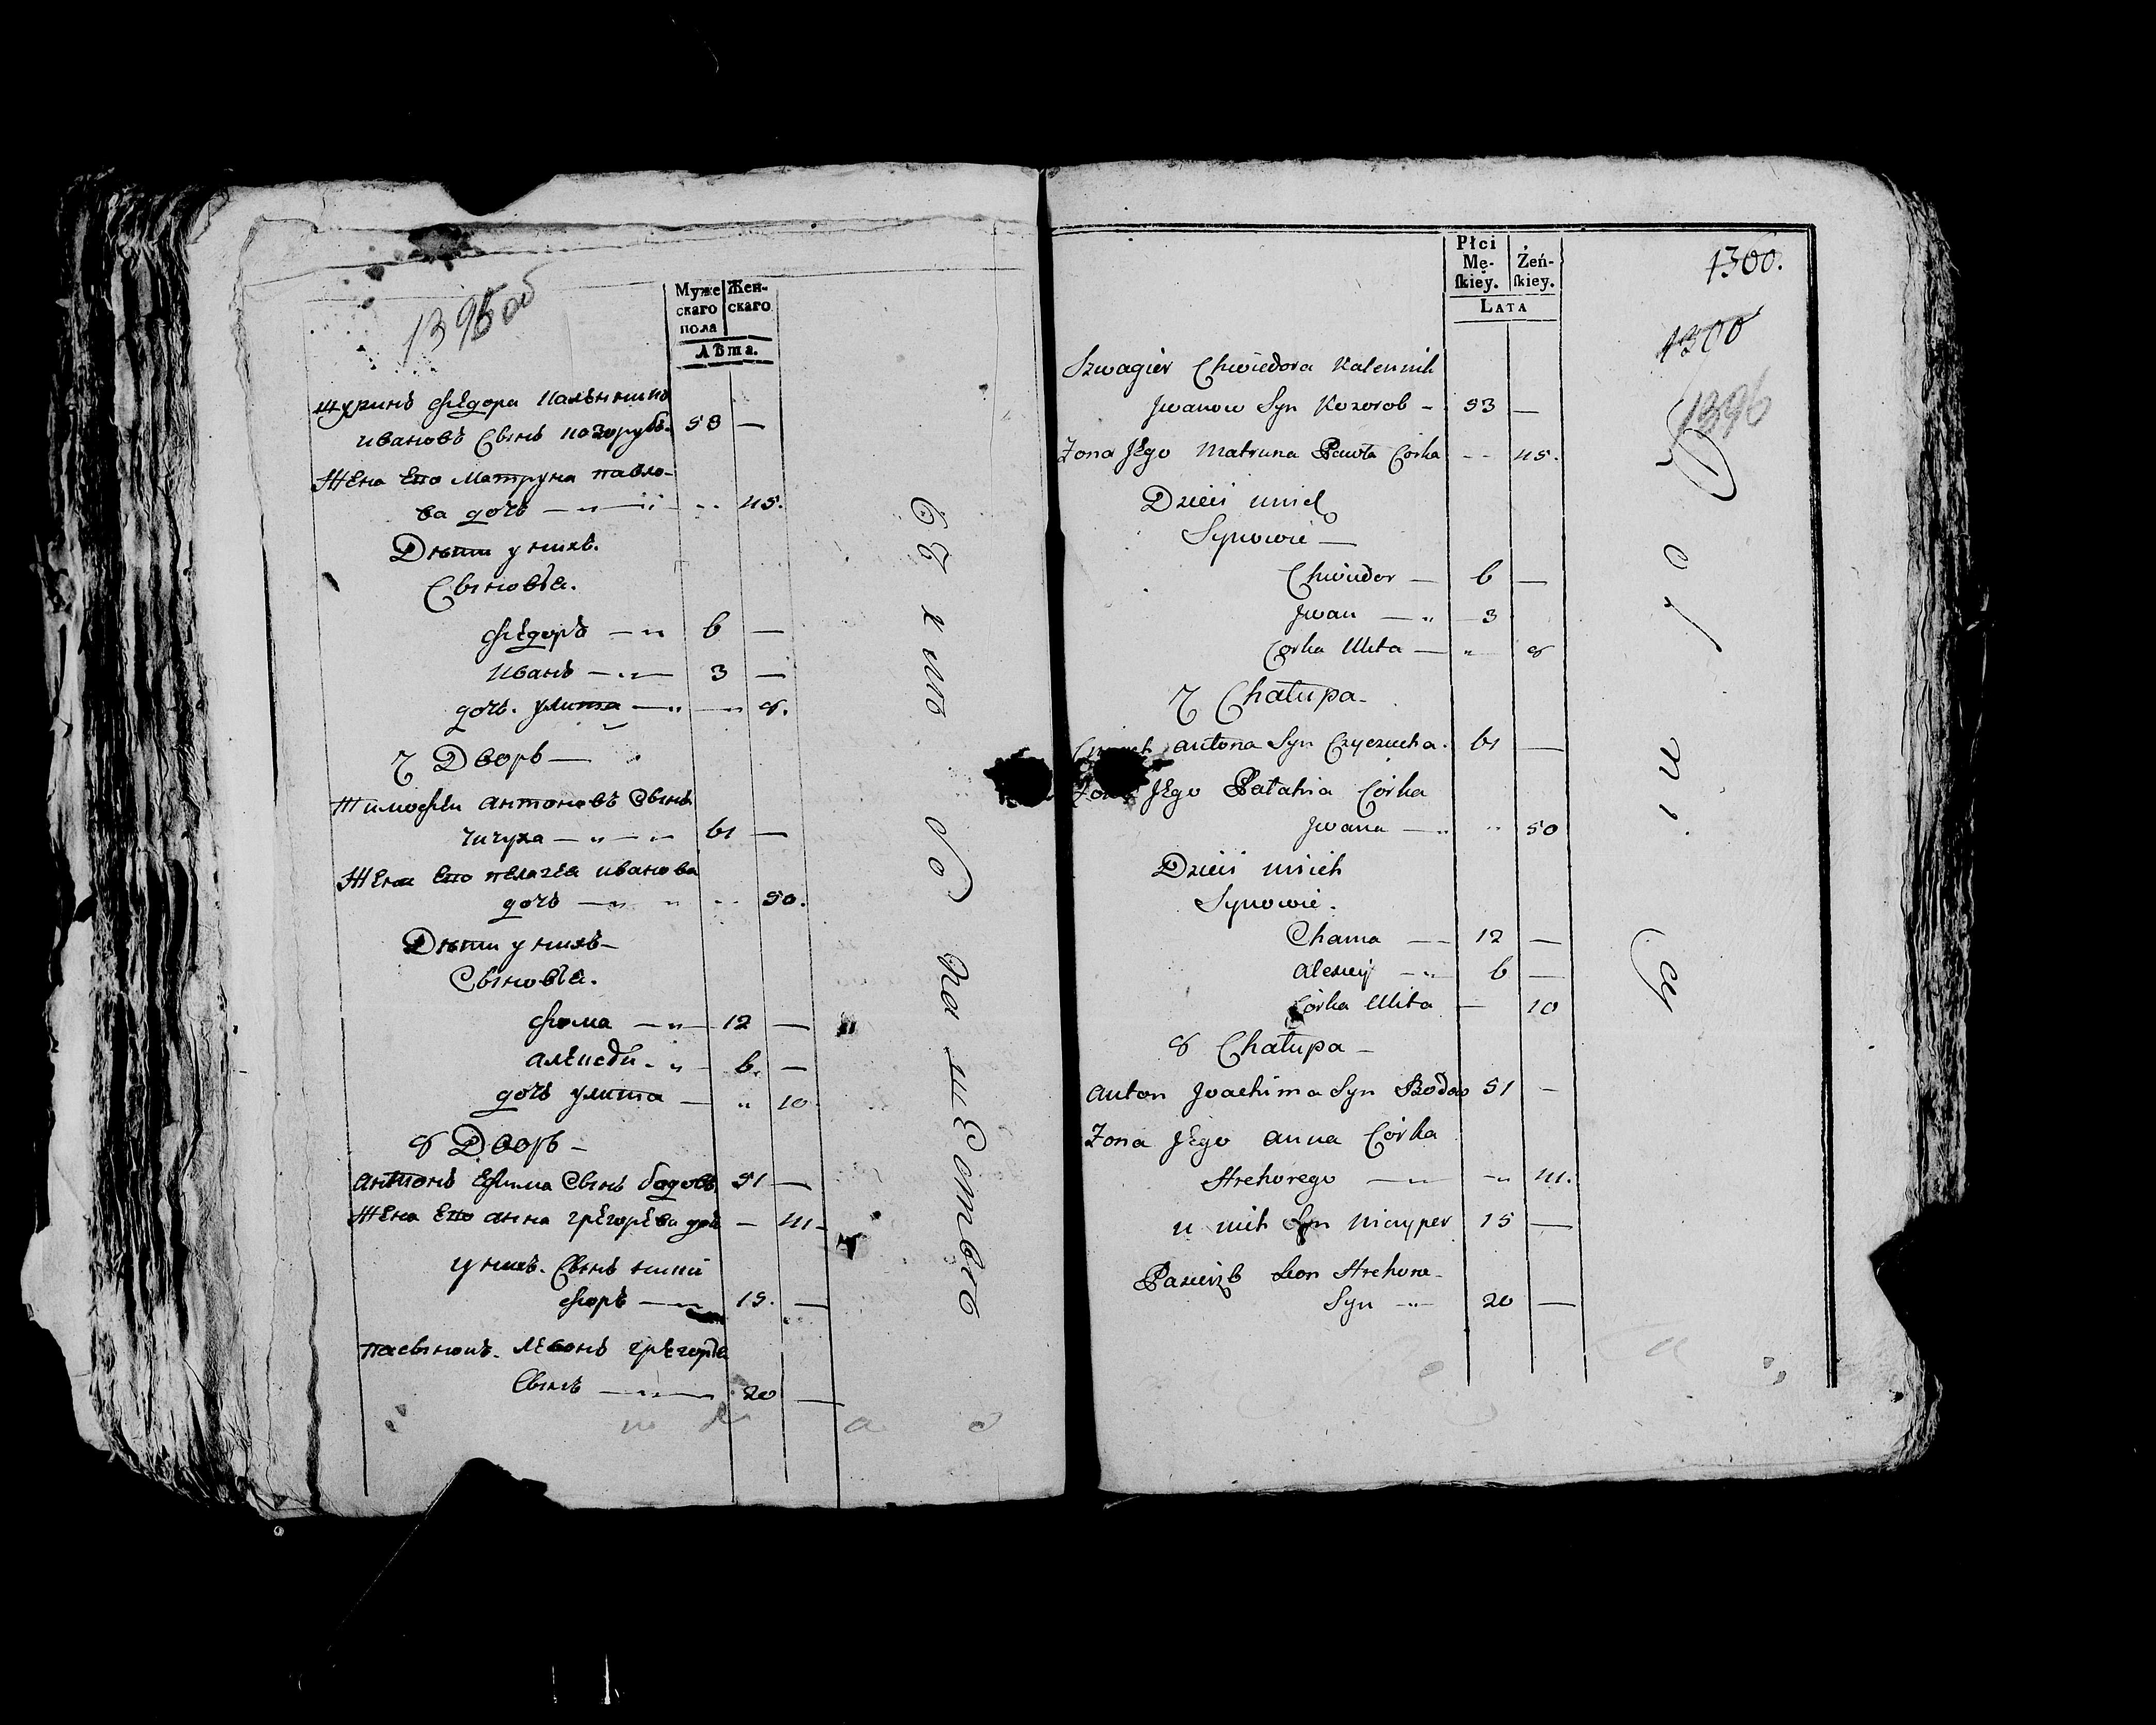 1395об
Муже
скаго
пола
Жен-
скаго
Лѣта.
шуринъ Фіедора Калѣнникъ
ивановъ Сынъ козорубъ. 53 —
Жена Его Матруна павло-
ва дочь — 45.
Дѣти у нихъ.
Сыновья.
Фіедоръ — 6 —
иванъ — 3 —
дочь. улита — 8.
7 Дворъ —
Тимофѣи антоновъ Сынъ
чичуха — 61 —
Жена Его пелагѣя иванова
дочь — 50.
Дѣти у нихъ —
Сыновья.
фома — 12 —
алексѣи. 6. —
дочь улита — 10
8 Дворъ —
антонъ Ефима Сынъ бодовъ 51 —
Жена Его анна грегорева доч — 41 —
у нихъ. Сынъ ники
форъ — 15. —
пасынокъ. Левонъ грегорья
Сынъ — 20 —
Płci
Mę-
ſkiey.
Żeń-
ſkiey.
Lata
1300.
1300
1396
Szwagier Chwiedora Kalennik
Jwanow Syn Kozorob — 53 —
Zona Jego Matruna Pawła Corka — 45.
Dzieci unich
Synowie —
Chwiedor — 6 —
Jwan — 3
Corka Ulita — 8
7 Chałupa —
antona Syn Czyczucha. 61 —
Zona Jego Palahia Córka
Jwana — 50
Dzieci unich
Synowie.
Chama — 12 —
alexiey — 6 —
Córka Ulita — 10
8 Chałupa —
anton Joachima Syn Bodow 51 —
Zona Jego anna Córka
Hrehorego — 41.
u nich Syn Niczyper 15 —
Pasierzb Leon Hrehore —
Syn — 20 —